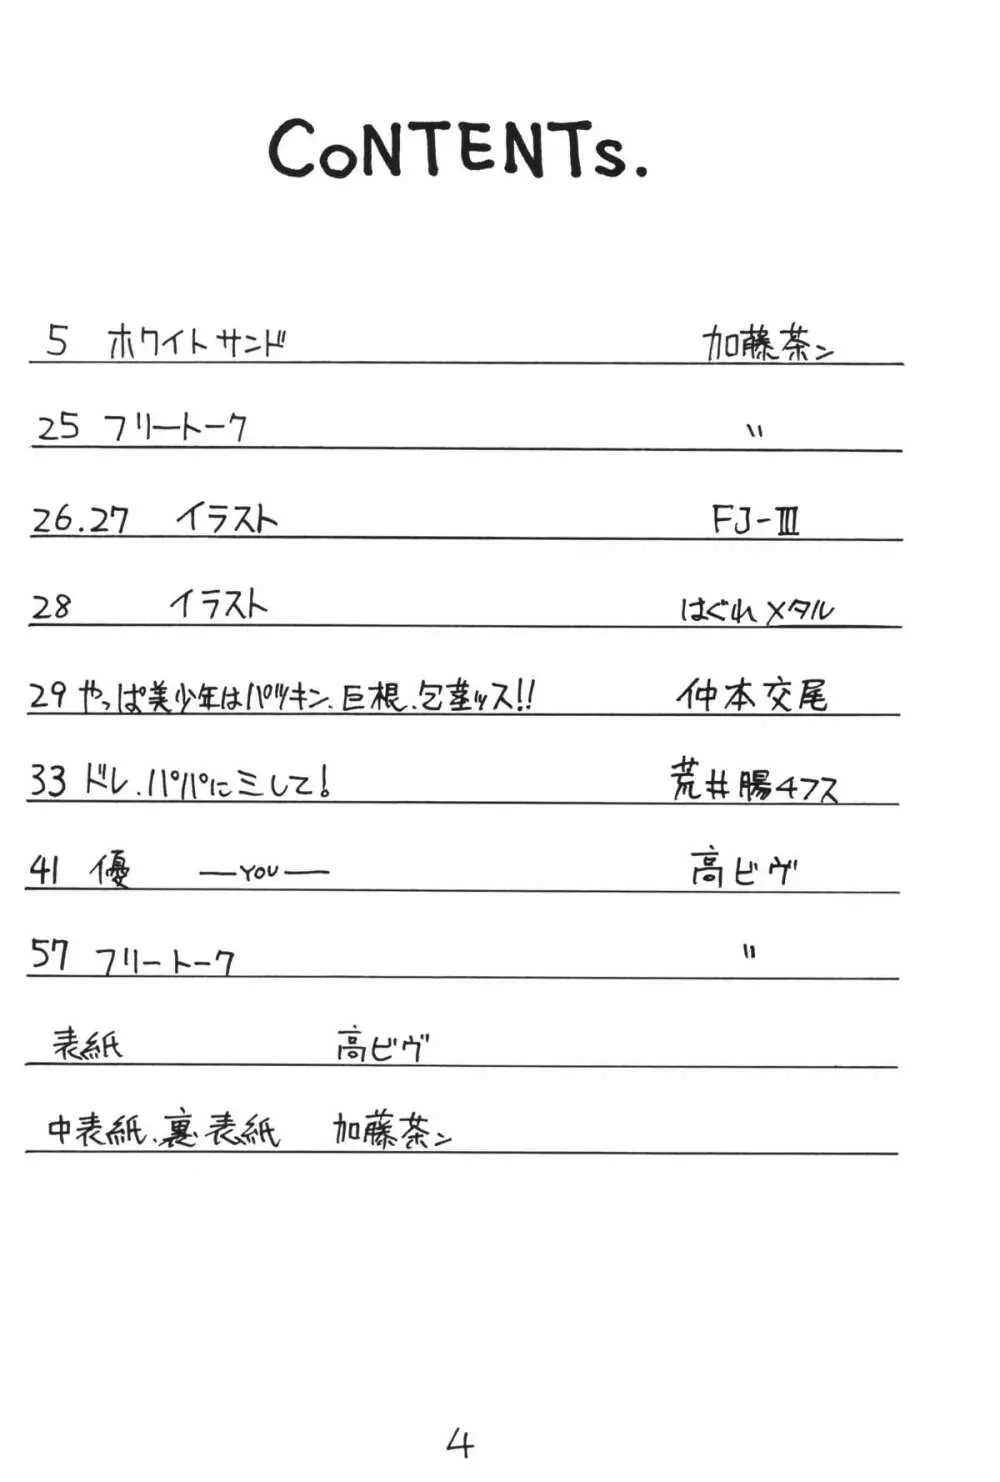 CoNTENTs.
5 ホワイトサンド 加藤茶ン
25 フリートーク 〃
26.27 イラスト FJ-Ⅲ
28 イラスト はぐれメタル
29 やっぱ美少年はパツキン、巨根、包茎ッス!!  仲本交尾
33 ドレ、パパにミして! 荒井腸4フス
41 優 ―YOU― 高ビヴ
57 フリートーク 〃
表紙 高ビヴ
中表紙、裏表紙 加藤茶ン
4